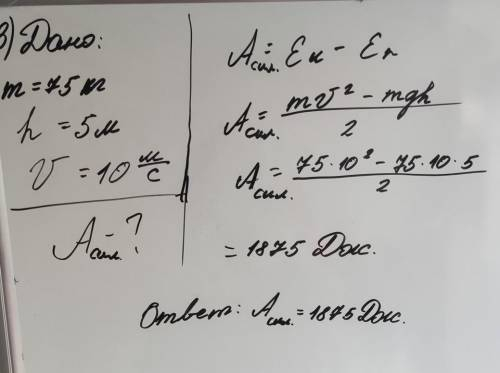 3) Дано:
m = 75 кг
h = 5 м
V = 10 м/с
Aсил. - ?
Aсил. = Eк - Eп
Aсил. = mV² - mgh / 2
Aсил. = 75·10² - 75·10·5 / 2
= 1875 Дж.
Ответ: Aсил. = 1875 Дж.